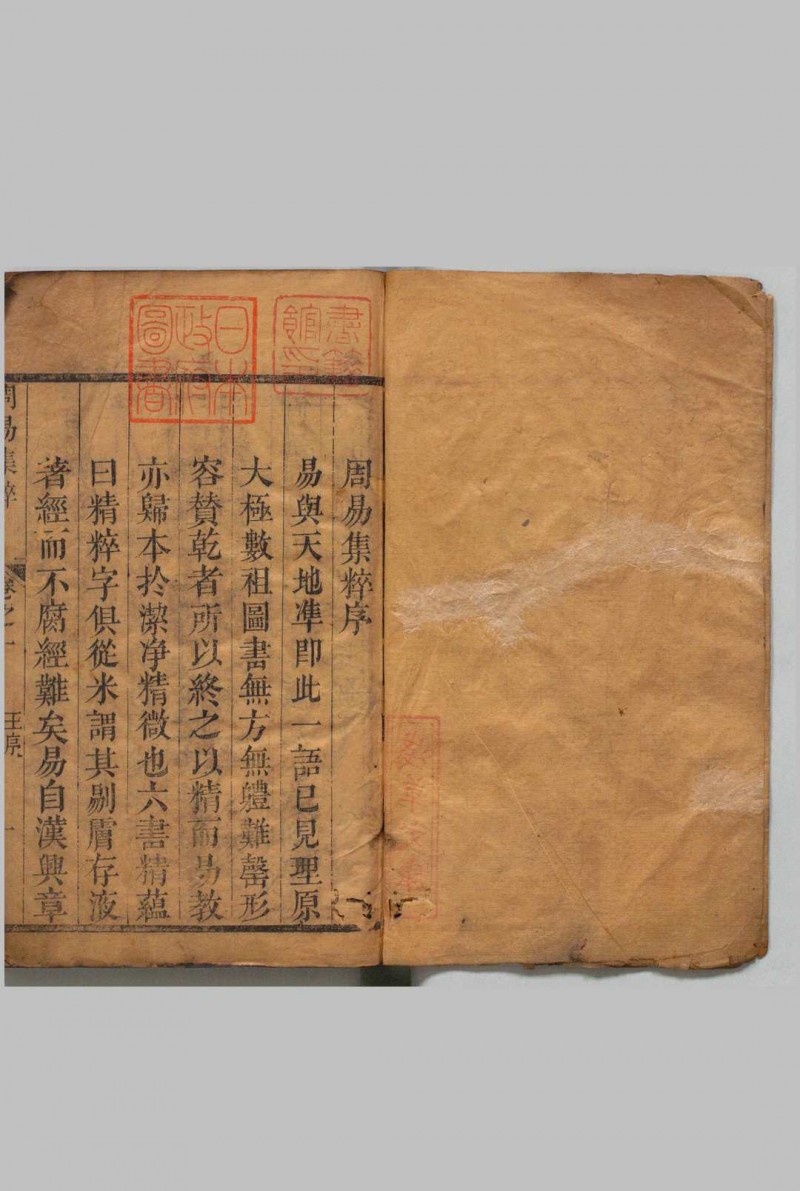 周易集粹序
易與天地準即此一語已見理原
大極數祖圖書無方無軆難罄形
容贊乾者所以終之以精而易教
亦歸本扵潔净精微也六書精蘊
曰精粹字俱從米謂其剔膚存液
著經而不腐經難矣易自漢興章
周易集粹
卷之一
一
書籍館印
日本政府圖書